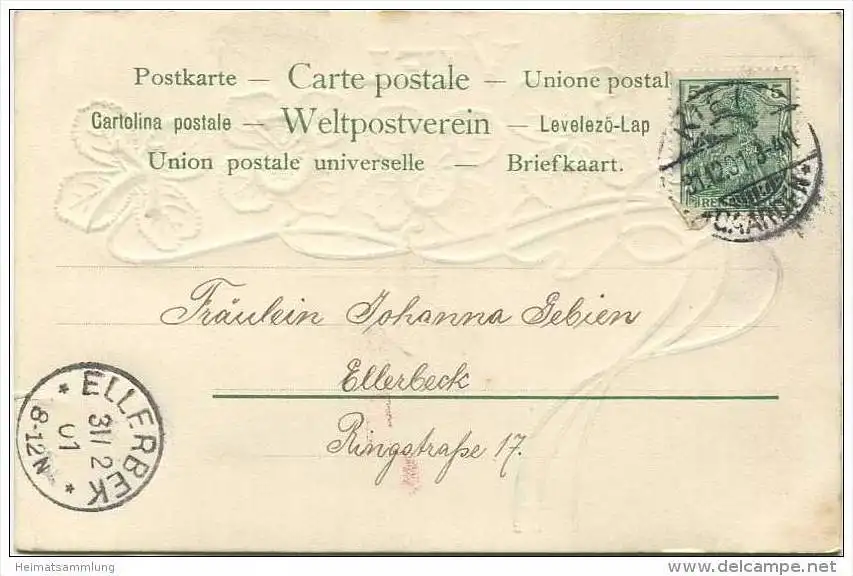 Postkarte — Carte postale — Unione postal
Cartolina postale — Weltpostverein — Levelező-Lap
Union postale universelle — Briefkaart.
5 5
31.12.01.3-4N
Fräulein Johanna Gebien
Ellerbeck
Ringstraße 17.
* ELLERBEK *
31/12
01
8-12N
Heimatsammlung
delcampe.net